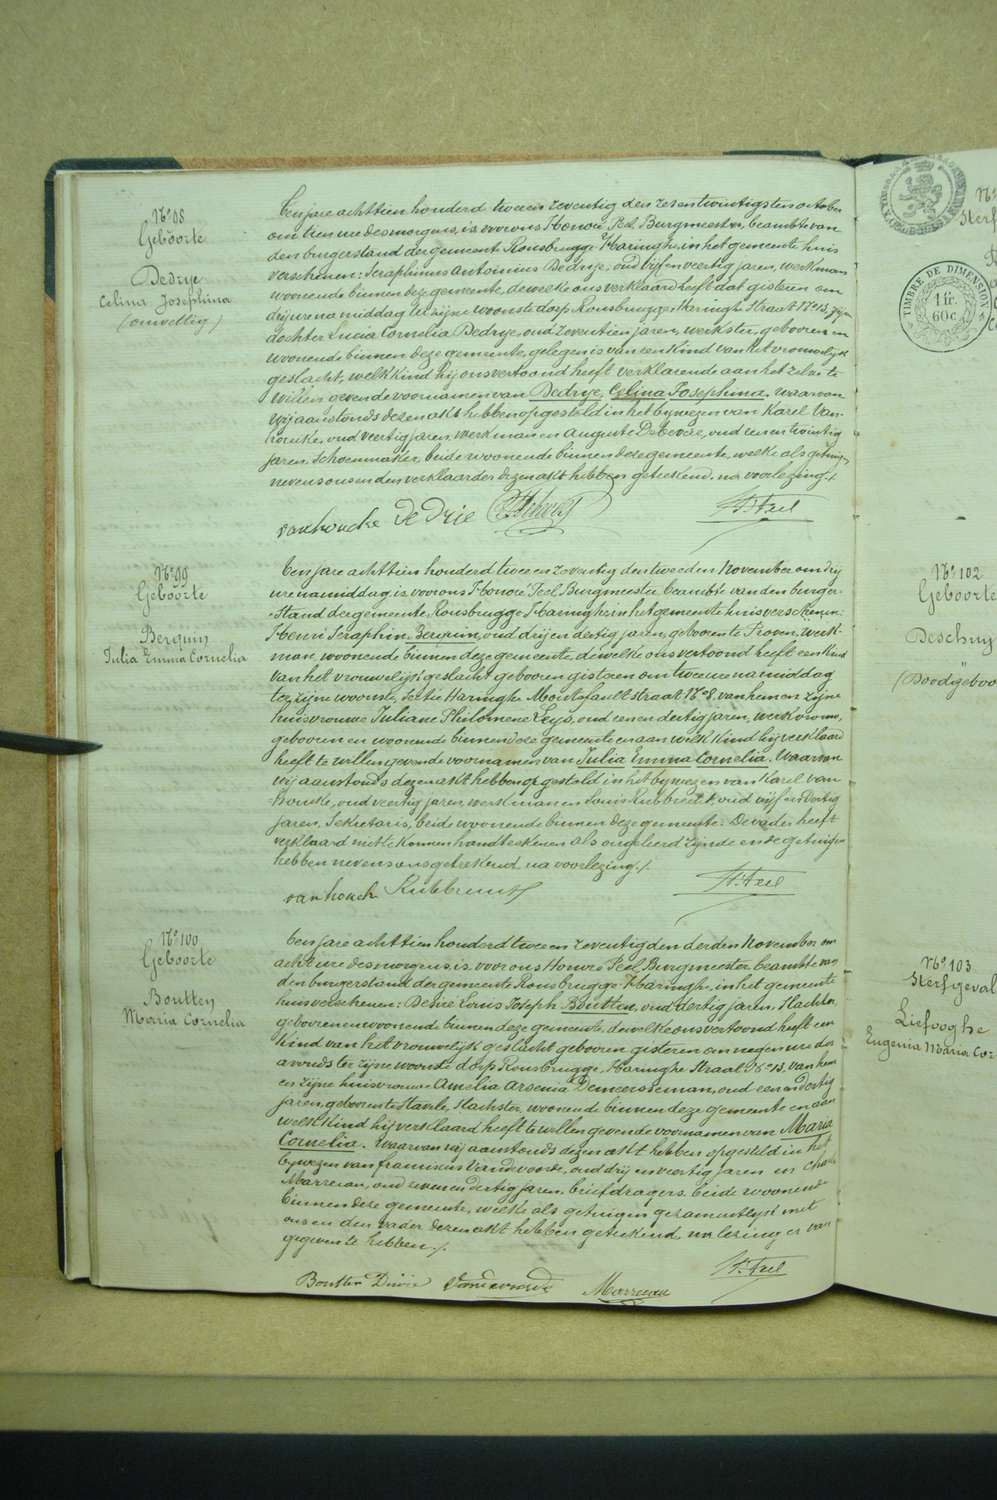 Nº 98
Geboorte
Dedrye
Celina Josephina
(onwettig)
Ten jare achttien honderd twee en zeventig den zes en twintigsten october
om tien ure des morgens, is voor ons Honoré Feel Burgmeester, beambte van
den burgerstand der gemeente Rousbrugge-Haringhe, in het gemeente huis
verschenen: Seraphinus Antonius Dedrye, oud vijf en veertig jaren, werkman
woonende binnen deze gemeente, dewelke ons verklaard heeft dat gisteren om
drij ure na middag te zijne woonste dorp Rousbrugge Haringhe Straat Nº 13, zijne
dochter Lucia Cornelia Dedrye, oud zeventien jaren, werkster, geboren en
woonende binnen deze gemeente, gelegen is van een kind van het vrouwelijk
geslacht, welk kind hij ons vertoond heeft verklarende aan het zelve te
willen gevende voornamen van Dedrye, Celina Josephina. waarvan
wij aanstonds dezen akt hebben opgesteld in het bijwezen van Karel Van-
houcke, oud veertig jaren, werkman en Auguste Debever, oud een en twintig
jaren, schoenmaker, beide woonende binnen deze gemeente, welke als getuigen
nevens ons en den verklaarder dezen akt hebben geteekend. na voorlezing ./.
vanhoucke De Drie H. Feel
Nº 99
Geboorte
Berquin
Julia Emma Cornelia
Ten jare achttien honderd twee en zeventig den tweeden November om drij
ure namiddag, is voor ons Honoré Feel Burgmeester, beambte van den burger-
stand der gemeente Rousbrugge Haringhe, in het gemeente huis verschenen:
Henri Seraphin Berquin, oud drij en dertig jaren, geboren te Proven, werk-
man, woonende binnen deze gemeente, dewelke ons vertoond heeft een kind
van het vrouwelijk geslacht geboren gisteren om twee ure namiddag
te zijne woonste, sectie Haringhe straat Nº 8, van hem en zijne
huisvrouwe Juliane Philomene Leys, oud een en dertig jaren, werkvrouw,
geboren en woonende binnen deze gemeente en aan welk kind hij verklaard
heeft te willen gevende voornamen van Julia Emma Cornelia. Waarvan
wij aanstonds dezen akt hebben opgesteld in het bijwezen van Karel van
houcke, oud veertig jaren, werkman en Louis Rubbrecht, oud vijf en dertig
jaren, Sekretaris, beide woonende binnen deze gemeente. De vader heeft
verklaard niet te konnen handteekenen als ongeleerd zijnde en de getuigen
hebben nevens ons geteekend na voorlezing ./.
vanhouck Rubbrecht H. Feel
Nº 100
Geboorte
Boutten
Maria Cornelia
Ten jare achttien honderd twee en zeventig den derden November om
acht ure des morgens, is voor ons Honoré Feel, Burgmeester beambte van
den burgerstand der gemeente Rousbrugge-Haringhe, in het gemeente
huis verschenen: Desire Louis Joseph Boutten, oud dertig jaren, slachter,
geboren en woonende binnen deze gemeente, dewelke ons vertoond heeft een
kind van het vrouwelijk geslacht geboren gisteren om negen ure des
avonds te zijne woonste dorp Rousbrugge, Haringhe Straat Nº 13, van hem
en zijne huisvrouwe Amelia Arsenia Demeersseman, oud een en dertig
jaren, geboren te Stavele, slachster, woonende binnen deze gemeente en aan
welk kind hij verklaard heeft te willen gevende voornamen van Maria
Cornelia. Waarvan wij aanstonds dezen akt hebben opgesteld in het
bijwezen van franciscus Vandevoorde, oud drij en veertig jaren en
Marrecau, oud dertig jaren, briefdragers, beide woonende
binnen deze gemeente, welke als getuigen gezamentlijk met
ons en den vader dezen akt hebben geteekend, na lezing er van
gegeven te hebben ./.
H. Feel
Boutten Desiré Vandevoorde Marrecau
TIMBRE DE DIMENSION
1 fr.
60c.
Nº 102
Geboorte
Nº 103
Sterfgeval
Liefooghe
Eugenia Maria Cor